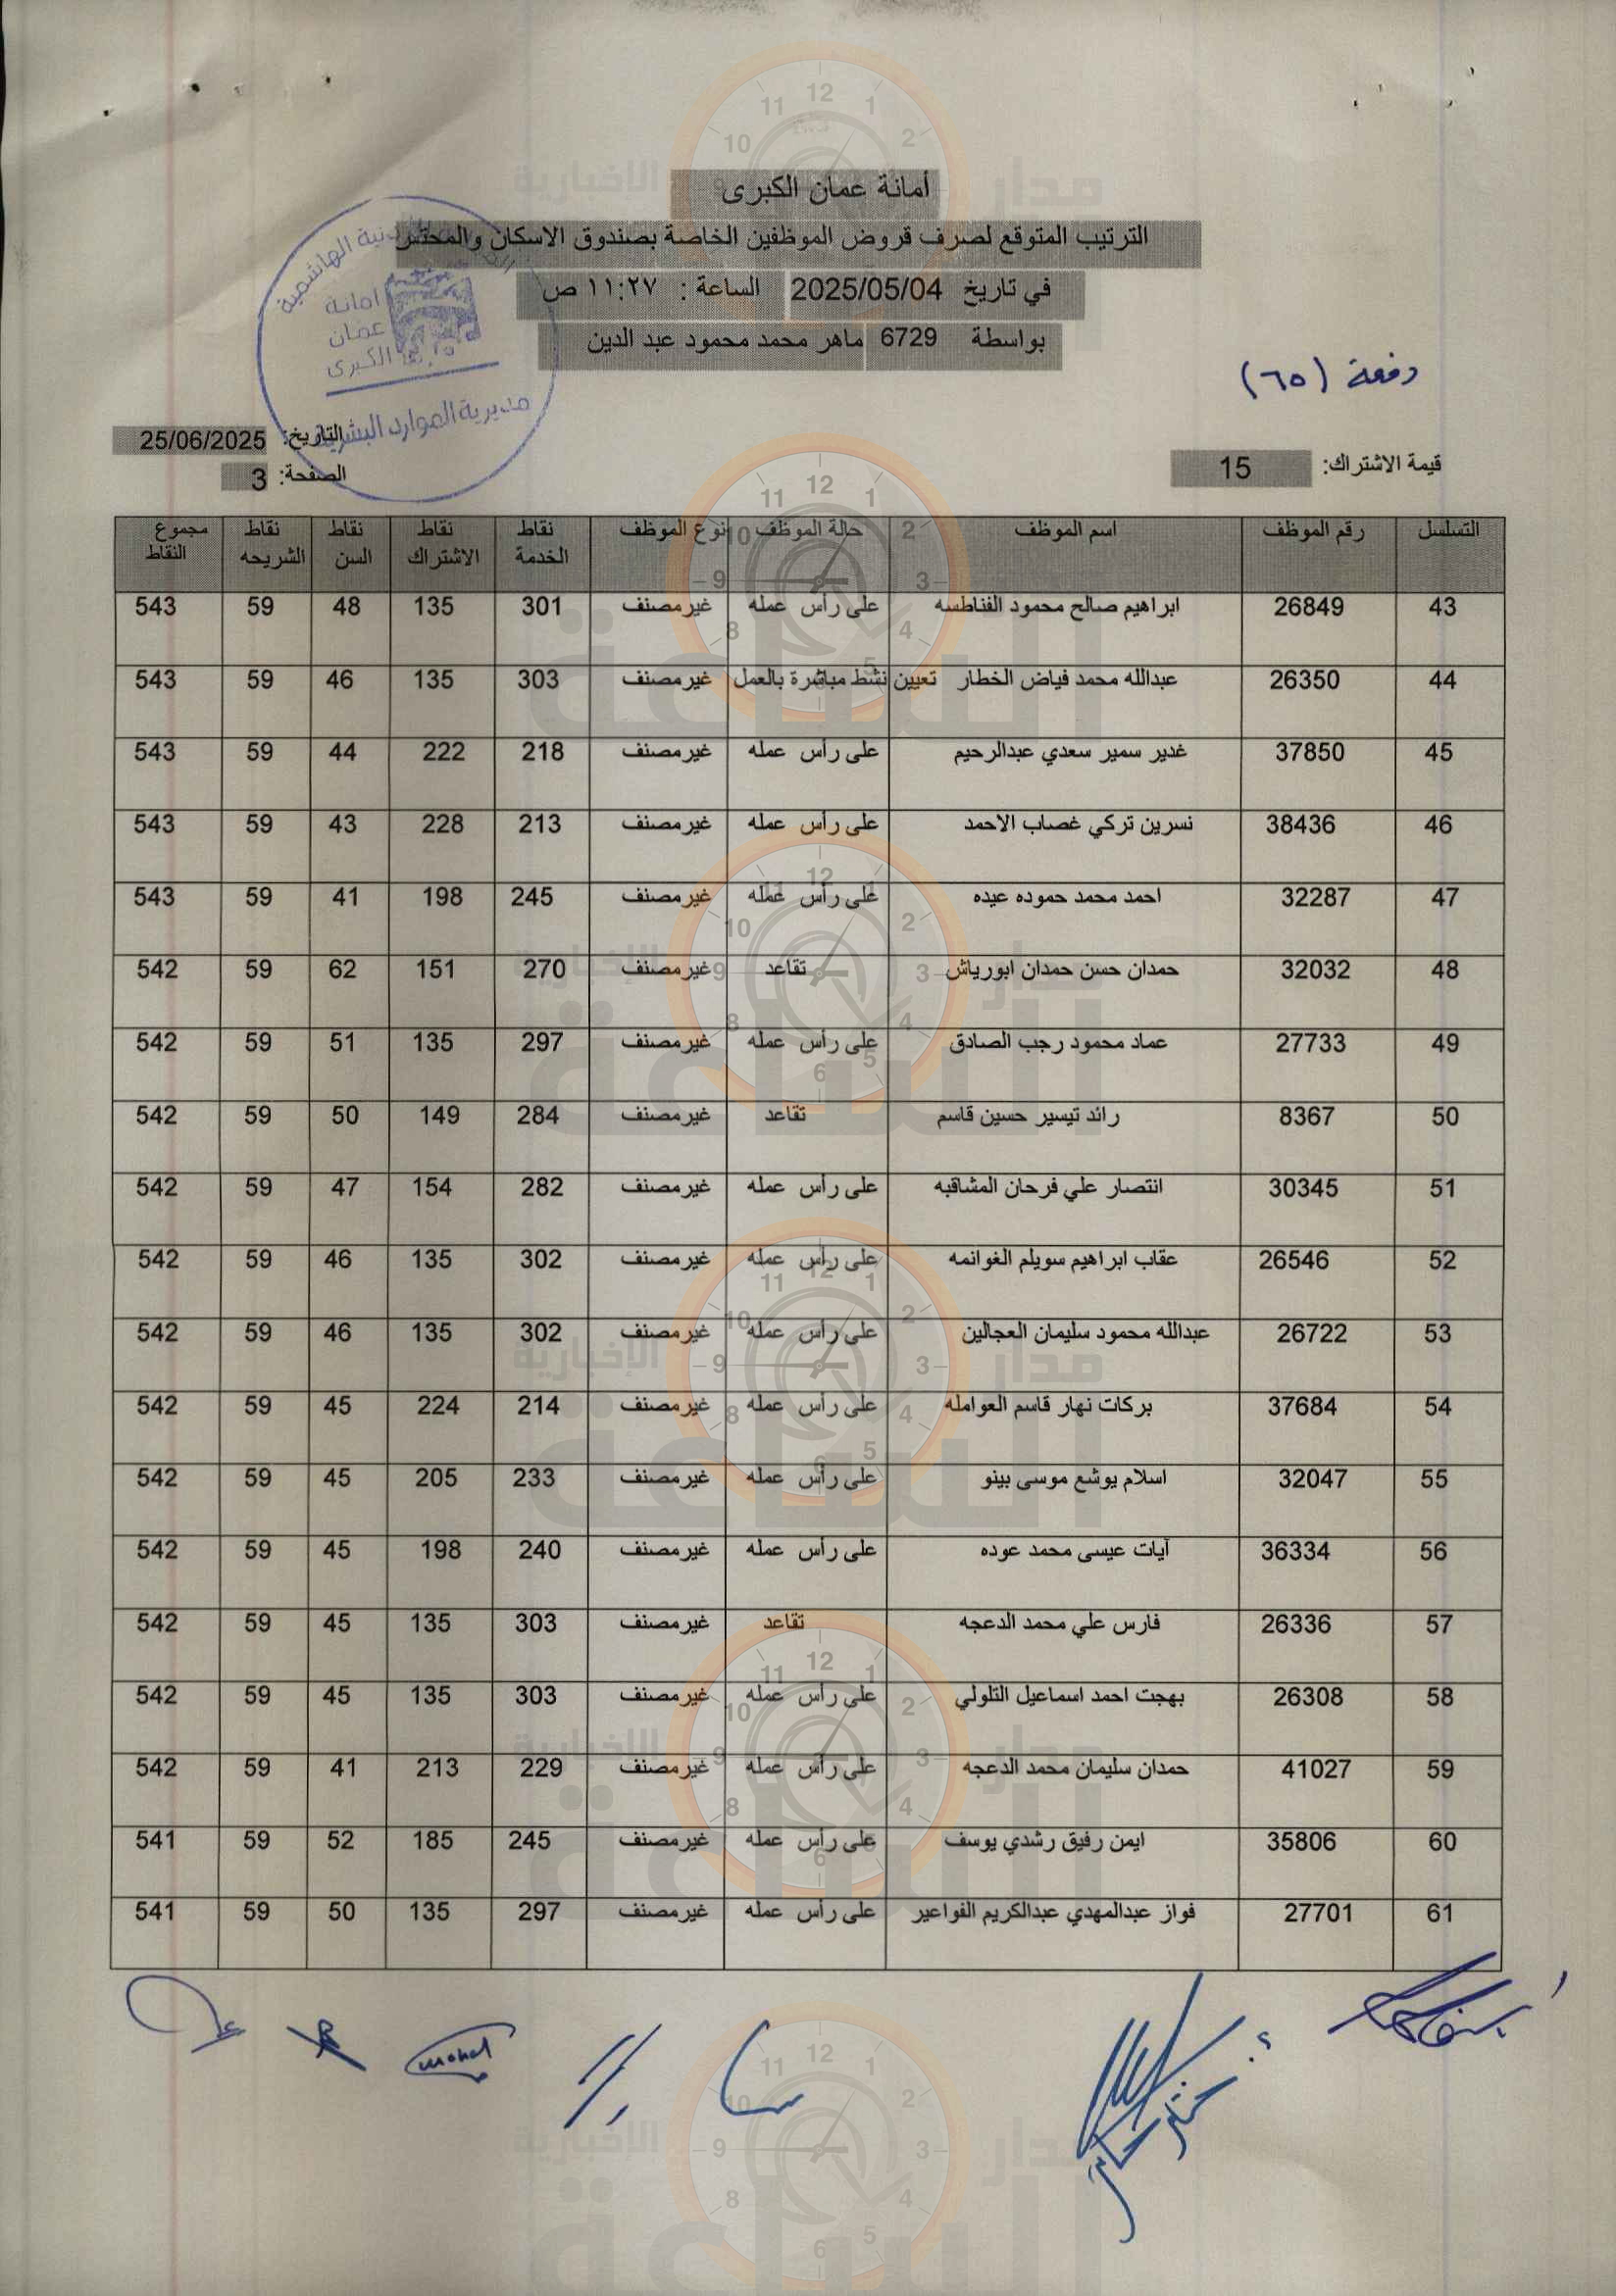 أمانة عمان الكبرى
الترتيب المتوقع لصرف قروض الموظفين الخاصة بصندوق الاسكان والمحتبس
في تاريخ 2025/05/04 الساعة : ١١:٢٧ ص
بواسطة 6729 ماهر محمد محمود عبد الدين
دفعة (٦٥)
امانة
عمان
الكبرى
مديرية الموارد البشرية
التاريخ: 25/06/2025
قيمة الاشتراك: 15
الصفحة: 3
التسلسل رقم الموظف اسم الموظف حالة الموظف نوع الموظف نقاط الخدمة نقاط الاشتراك نقاط السن نقاط الشريحه مجموع النقاط
43 26849 ابراهيم صالح محمود الفناطسه على رأس عمله غير مصنف 301 135 48 59 543
44 26350 عبدالله محمد فياض الخطار تعيين نشط مباشرة بالعمل غير مصنف 303 135 46 59 543
45 37850 غدير سمير سعدي عبدالرحيم على رأس عمله غير مصنف 218 222 44 59 543
46 38436 نسرين تركي غصاب الاحمد على رأس عمله غير مصنف 213 228 43 59 543
47 32287 احمد محمد حموده عيده على رأس عمله غير مصنف 245 198 41 59 543
48 32032 حمدان حسن حمدان ابورياش تقاعد غير مصنف 270 151 62 59 542
49 27733 عماد محمود رجب الصادق على رأس عمله غير مصنف 297 135 51 59 542
50 8367 رائد تيسير حسين قاسم تقاعد غير مصنف 284 149 50 59 542
51 30345 انتصار علي فرحان المشاقبه على رأس عمله غير مصنف 282 154 47 59 542
52 26546 عقاب ابراهيم سويلم الغوانمه على رأس عمله غير مصنف 302 135 46 59 542
53 26722 عبدالله محمود سليمان العجالين على رأس عمله غير مصنف 302 135 46 59 542
54 37684 بركات نهار قاسم العوامله على رأس عمله غير مصنف 214 224 45 59 542
55 32047 اسلام يوشع موسى بينو على رأس عمله غير مصنف 233 205 45 59 542
56 36334 آيات عيسى محمد عوده على رأس عمله غير مصنف 240 198 45 59 542
57 26336 فارس علي محمد الدعجه تقاعد غير مصنف 303 135 45 59 542
58 26308 بهجت احمد اسماعيل التلولي على رأس عمله غير مصنف 303 135 45 59 542
59 41027 حمدان سليمان محمد الدعجه على رأس عمله غير مصنف 229 213 41 59 542
60 35806 ايمن رفيق رشدي يوسف على رأس عمله غير مصنف 245 185 52 59 541
61 27701 فواز عبدالمهدي عبدالكريم الفواعير على رأس عمله غير مصنف 297 135 50 59 541
مدار الساعة الإخبارية